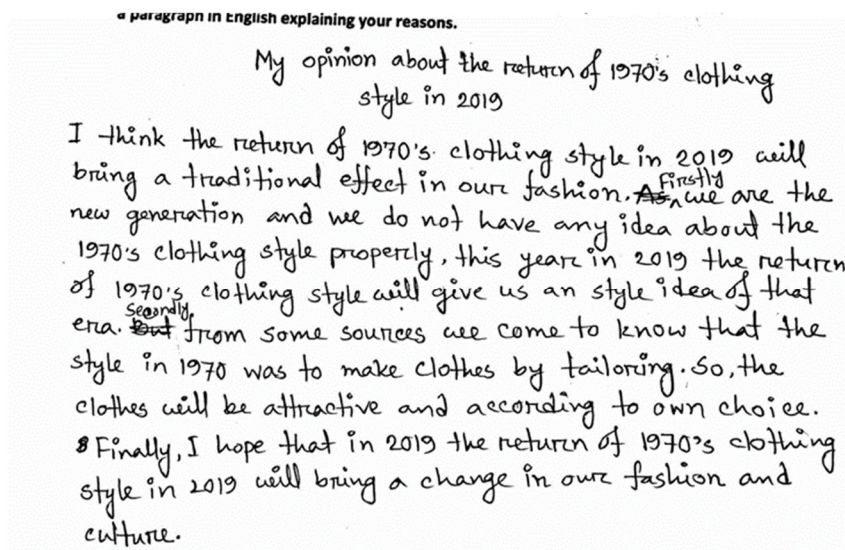 a paragraph in English explaining your reasons.
My opinion about the return of 1970's clothing
style in 2019
I think the return of 1970's clothing style in 2019 will
bring a traditional effect in our fashion. As Firstly we are the
new generation and we do not have any idea about the
1970's clothing style properly, this year in 2019 the return
of 1970's clothing style will give us an style idea of that
era. But Secondly, from some sources we come to know that the
style in 1970 was to make clothes by tailoring. So, the
clothes will be attractive and according to own choice.
Finally, I hope that in 2019 the return of 1970's clothing
style in 2019 will bring a change in our fashion and
culture.